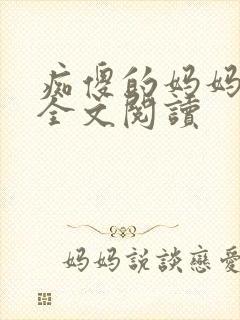 痴傻的妈妈
全文閱讀
妈妈説談戀愛